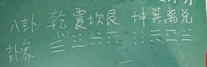 八卦 乾震坎艮 坤巽离兑
卦象 ☰ ☳ ☵ ☶ ☷ ☴ ☲ ☱